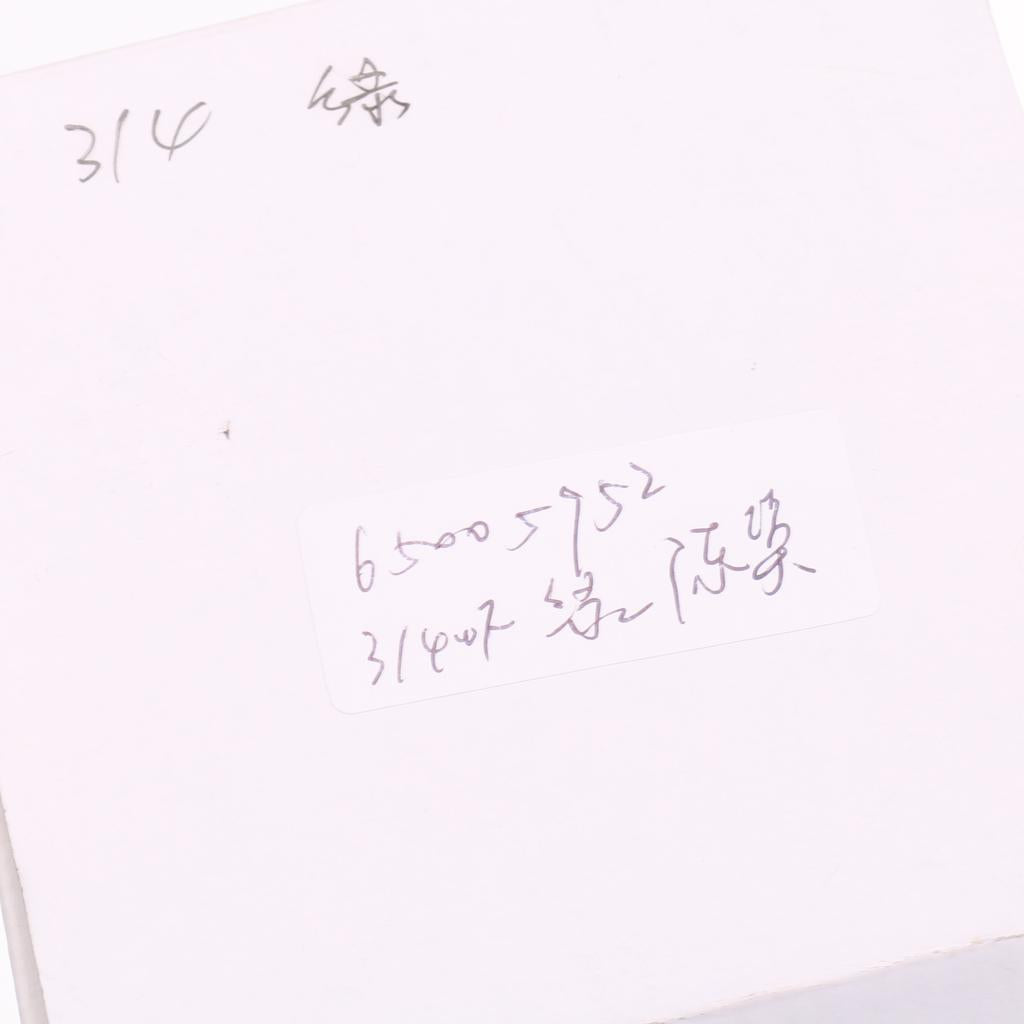 314 绿
65005752
314 绿 陈